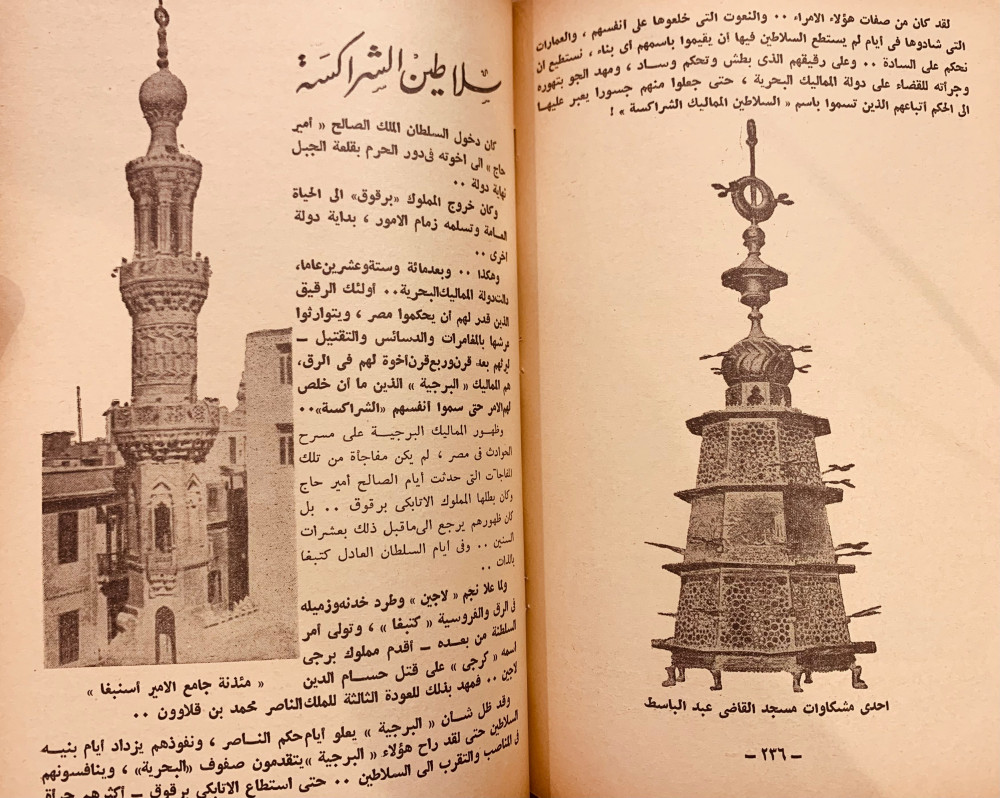 لقد كان من صفات هؤلاء الامراء .. والنعوت التى خلعوها على أنفسهم ، والعمارات
التى شادوها فى أيام لم يستطع السلاطين فيها أن يقيموا باسمهم أى بناء ، نستطيع ان
نحكم على السادة .. وعلى رقيقهم الذى بطش وتحكم وساد ، ومهد الجو بتهوره
وجرأته للقضاء على دولة المماليك البحرية ، حتى جعلوا منهم جسورا يعبر عليها
الى الحكم أتباعهم الذين تسموا باسم « السلاطين المماليك الشراكسة » !
احدى مشكاوات مسجد القاضى عبد الباسط
– ٢٣٦ –
سلاطين الشراكسة
كان دخول السلطان الملك الصالح « أمير
حاج » الى اخوته فى دور الحرم بقلعة الجبل
نهاية دولة ..
وكان خروج المملوك «برقوق» الى الحياة
العامة وتسلمه زمام الامور ، بداية دولة
اخرى ..
وهكذا .. وبعد مائة وستة وعشرين عاما،
دالت دولة المماليك البحرية.. أولئك الرقيق
الذين قدر لهم أن يحكموا مصر ، ويتوارثوا
عرشها بالمغامرات والدسائس والتقتيل –
ليرثهم بعد قرن وربع قرن اخوة لهم فى الرق،
هم المماليك « البرجية » الذين ما أن خلص
لهم الامر حتى سموا أنفسهم «الشراكسة»..
وظهور المماليك البرجية على مسرح
الحوادث فى مصر ، لم يكن مفاجأة من تلك
المفاجآت التى حدثت أيام الصالح أمير حاج
وكان بطلها المملوك الاتابكى برقوق .. بل
كان ظهورهم يرجع الى ماقبل ذلك بعشرات
السنين .. وفى أيام السلطان العادل كتبغا
بالذات ..
ولما علا نجم « لاجين » وطرد خدنه وزميله
فى الرق والفروسية « كتبغا » ، وتولى أمر
السلطنة من بعده – أقدم مملوك برجى
اسمه « كرجى » على قتل حسام الدين
لاجين .. فمهد بذلك للعودة الثالثة للملك الناصر محمد بن قلاوون ..
« مئذنة جامع الامير أسنبغا »
وقد ظل شان « البرجية » يعلو أيام حكم الناصر ، ونفوذهم يزداد أيام بنيه
السلاطين حتى لقد راح هؤلاء « البرجية » يتقدمون صفوف «البحرية» ، وينافسونهم
فى المناصب والتقرب الى السلاطين .. حتى استطاع الاتابكى برقوق – أكثرهم جرأة